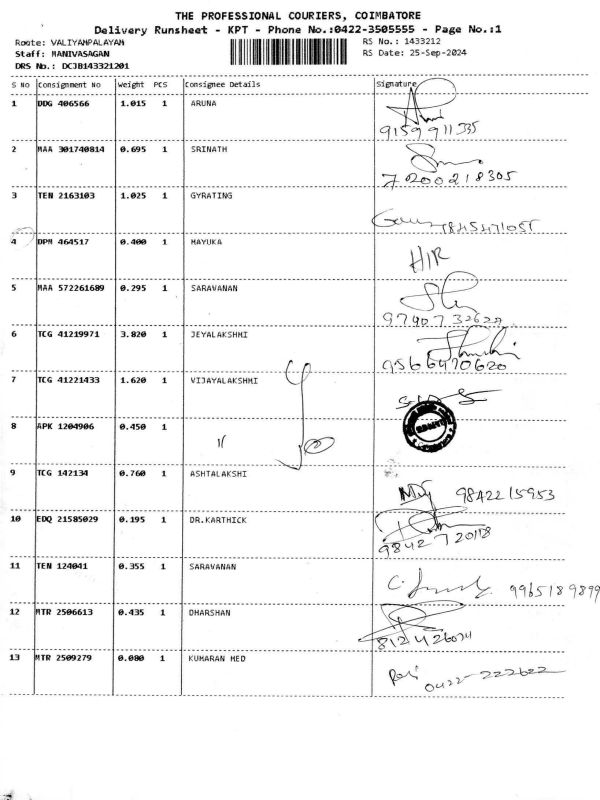 THE PROFESSIONAL COURIERS, COIMBATORE
Delivery Runsheet - KPT - Phone No.:0422-3505555 - Page No.:1
Route: VALIYAMPALAYAM RS No.: 1433212
Staff: MANIVASAGAN RS Date: 25-Sep-2024
DRS No.: DCJB143321201
S No Consignment No Weight PCS Consignee Details Signature
1 DDG 406566 1.015 1 ARUNA
9159911335
2 MAA 301740814 0.695 1 SRINATH
7200218305
3 TEN 2163103 1.025 1 GYRATING
4 DPM 464517 0.400 1 MAYUKA
HIR
5 MAA 572261689 0.295 1 SARAVANAN
6 TCG 41219971 3.820 1 JEYALAKSHMI
9566470620
7 TCG 41221433 1.620 1 VIJAYALAKSHMI
8 APK 1204906 0.450 1
"
9 TCG 142134 0.760 1 ASHTALAKSHI
9842215953
10 EDQ 21585029 0.195 1 DR.KARTHICK
11 TEN 124041 0.355 1 SARAVANAN
9965189899
12 MTR 2506613 0.435 1 DHARSHAN
13 MTR 2509279 0.080 1 KUMARAN MED
0422-222622